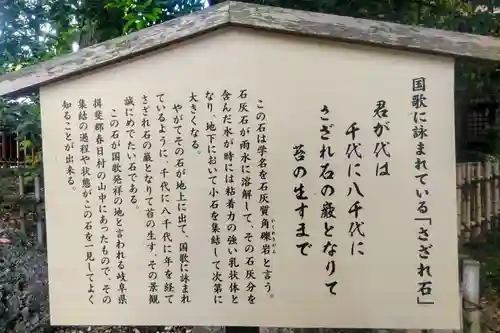 国歌に詠まれている「さざれ石」
君が代は
千代に八千代に
さざれ石の巌となりて
苔の生すまで
この石は学名を石灰質角礫岩と言う。
石灰石が雨水に溶解して、その石灰分を
含んだ水が時には粘着力の強い乳状体と
なり、地下において小石を集結して次第に
大きくなる。
やがてその石が地上に出て、国歌に詠まれ
ているように、千代に八千代に年を経て
さざれ石の巌となりて苔の生す、その景観
誠にめでたい石である。
この石が国歌発祥の地と言われる岐阜県
揖斐郡春日村の山中にあったもので、その
集結の過程や状態がこの石を一見してよく
知ることが出来る。